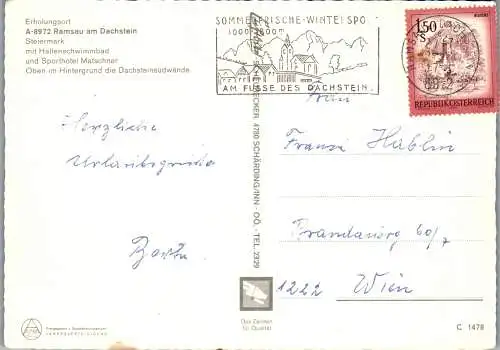 Erholungsort
A-8972 Ramsau am Dachstein
Steiermark
mit Hallenschwimmbad
und Sporthotel Matschner
Oben im Hintergrund die Dachsteinsüdwände
SOMMERFRISCHE-WINTERSPO
AM FUSSE DES DACHSTEIN
1,50
S
REPUBLIK ÖSTERREICH
4780 SCHÄRDING/INN - OÖ. - TEL. 2329
Herzliche
Urlaubsgrüße
Franzi Hablin
60/7
1222 Wien
Das Zeichen
für Qualität
C 1478